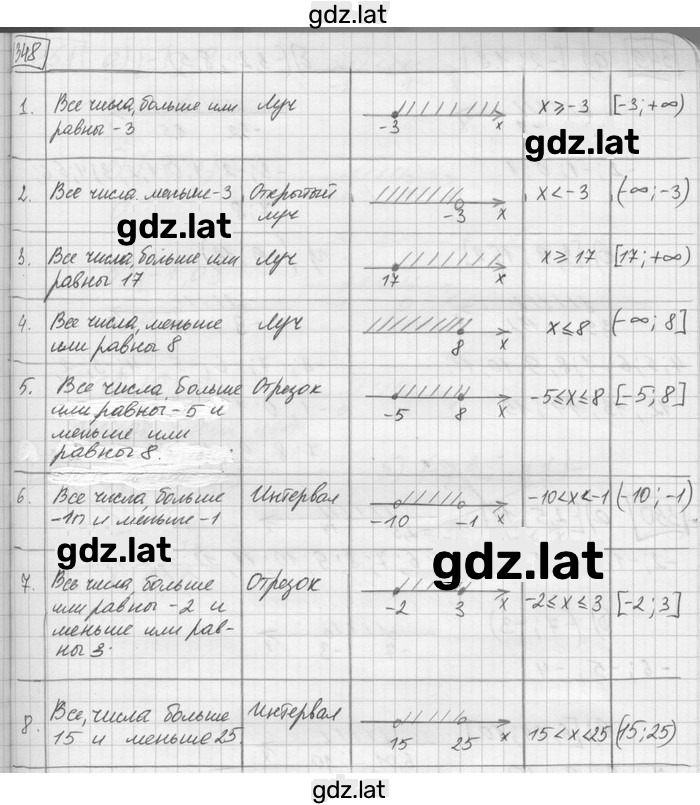 gdz.lat
348
1. Все числа, больше или Луч -3 x x ⩾ -3 [-3; +∞)
равны -3
gdz.lat
2. Все числа меньше -3 Открытый -3 x x < -3 (-∞; -3)
луч
gdz.lat
3. Все числа, больше или Луч 17 x x ⩾ 17 [17; +∞)
равны 17
4. Все числа, меньше Луч 8 x x ⩽ 8 (-∞; 8]
или равны 8
5. Все числа, больше Отрезок -5 8 x -5 ⩽ x ⩽ 8 [-5; 8]
или равны -5 и
меньше или
равны 8.
6. Все числа, больше Интервал -10 -1 x -10 < x < -1 (-10; -1)
-10 и меньше -1
gdz.lat gdz.lat
7. Все числа, больше Отрезок -2 3 x -2 ⩽ x ⩽ 3 [-2; 3]
или равны -2 и
меньше или рав-
ны 3.
8. Все, числа больше Интервал 15 25 x 15 < x < 25 (15; 25)
15 и меньше 25.
gdz.lat